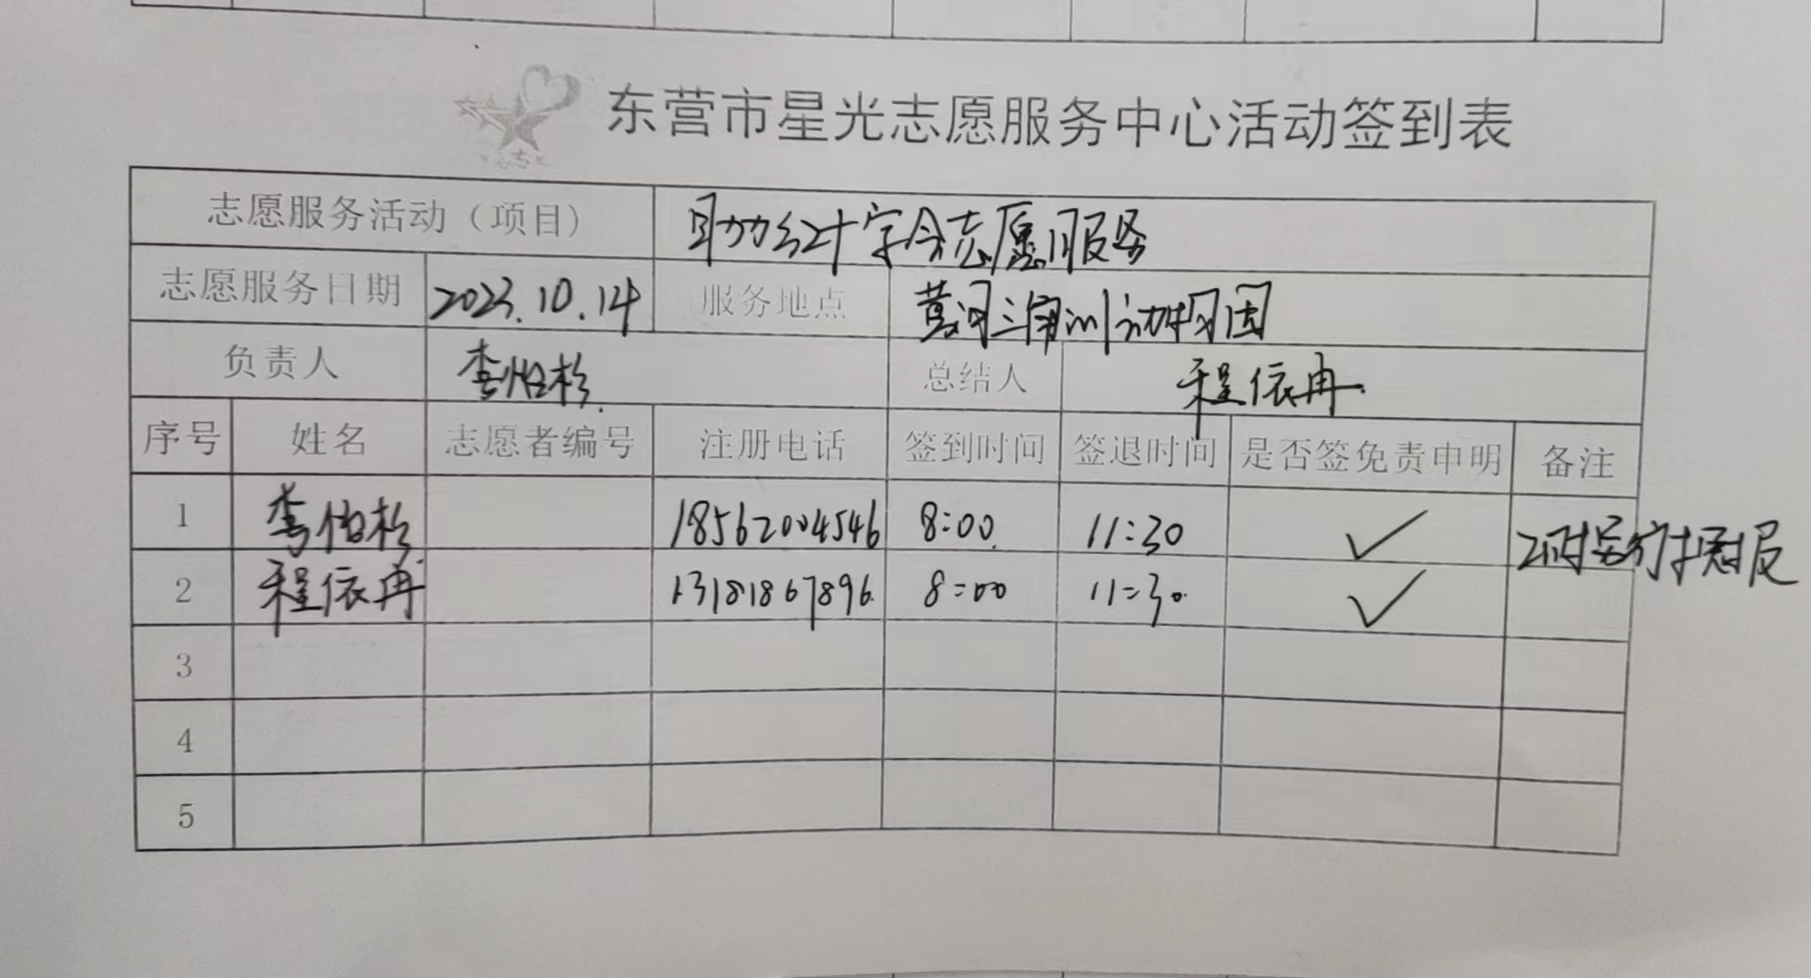 东营市星光志愿服务中心活动签到表
志愿服务活动（项目） 助力红十字会志愿服务
志愿服务日期 2023.10.14 服务地点 黄河三角洲动物园
负责人 李怡杉 总结人 程依冉
序号 姓名 志愿者编号 注册电话 签到时间 签退时间 是否签免责申明 备注
1 李怡杉 18562004546 8:00 11:30 ✓
2 程依冉 13181867896 8:00 11:30 ✓
3
4
5